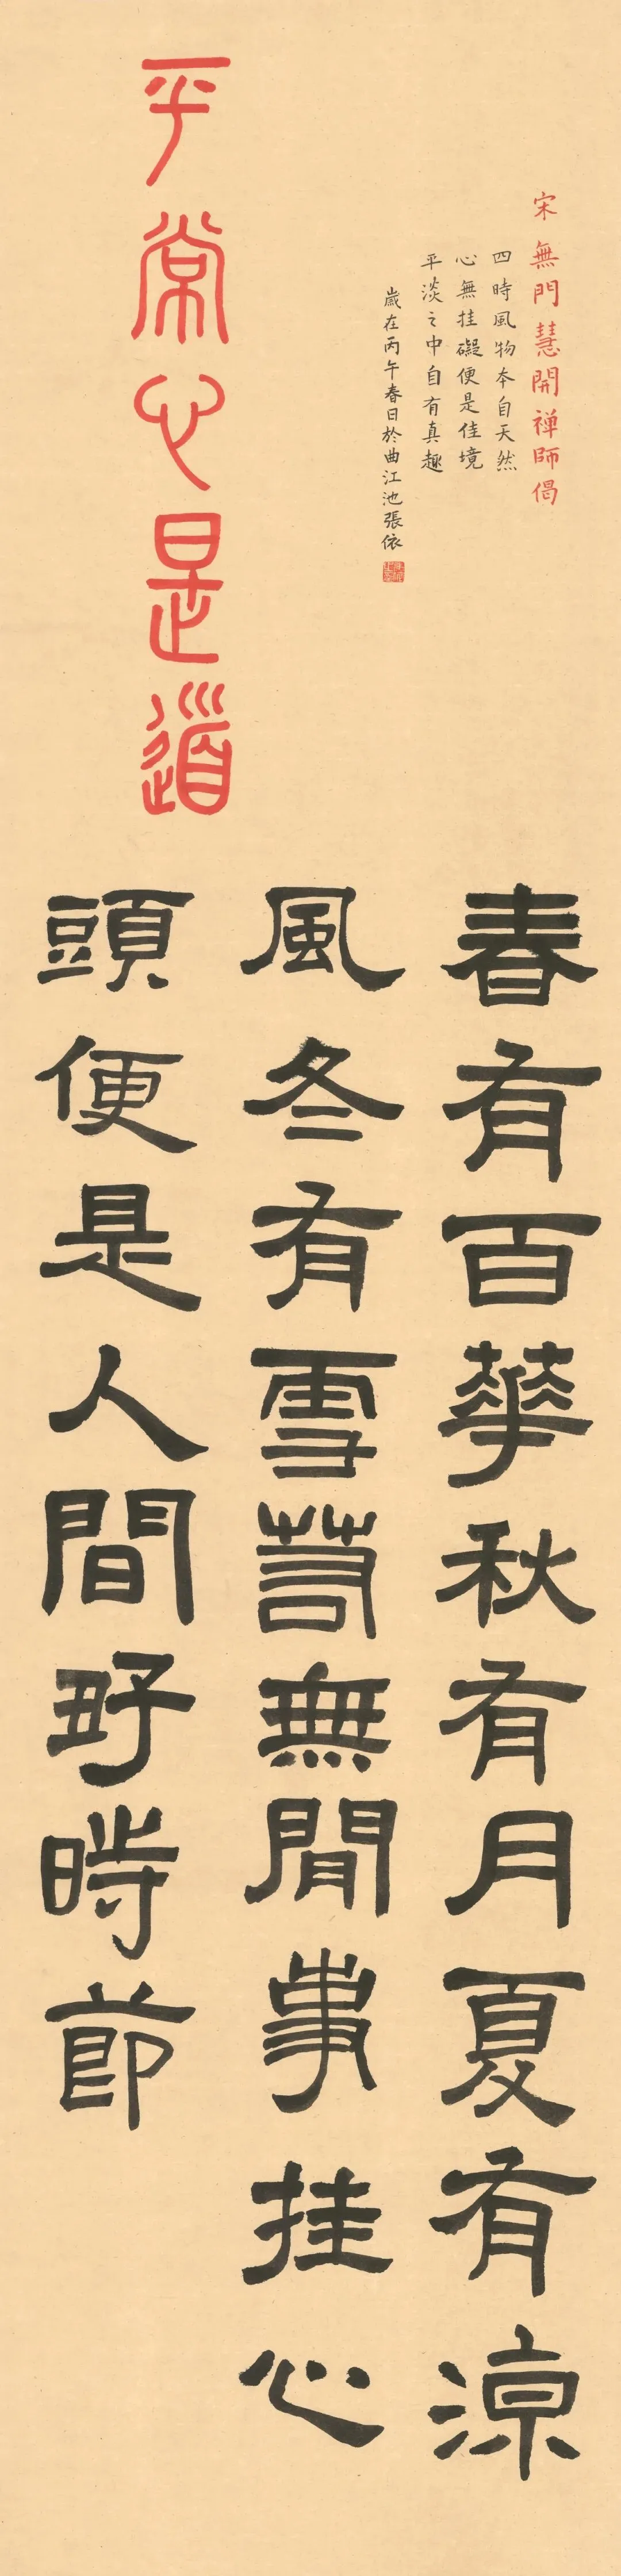 宋無門慧開禅師偈
四時風物本自天然
心無挂礙便是佳境
平淡之中自有真趣
歲在丙午春日於曲江池張依
平常心是道
春有百華秋有月夏有涼
風冬有雪若無閒事挂心
頭便是人間好時節